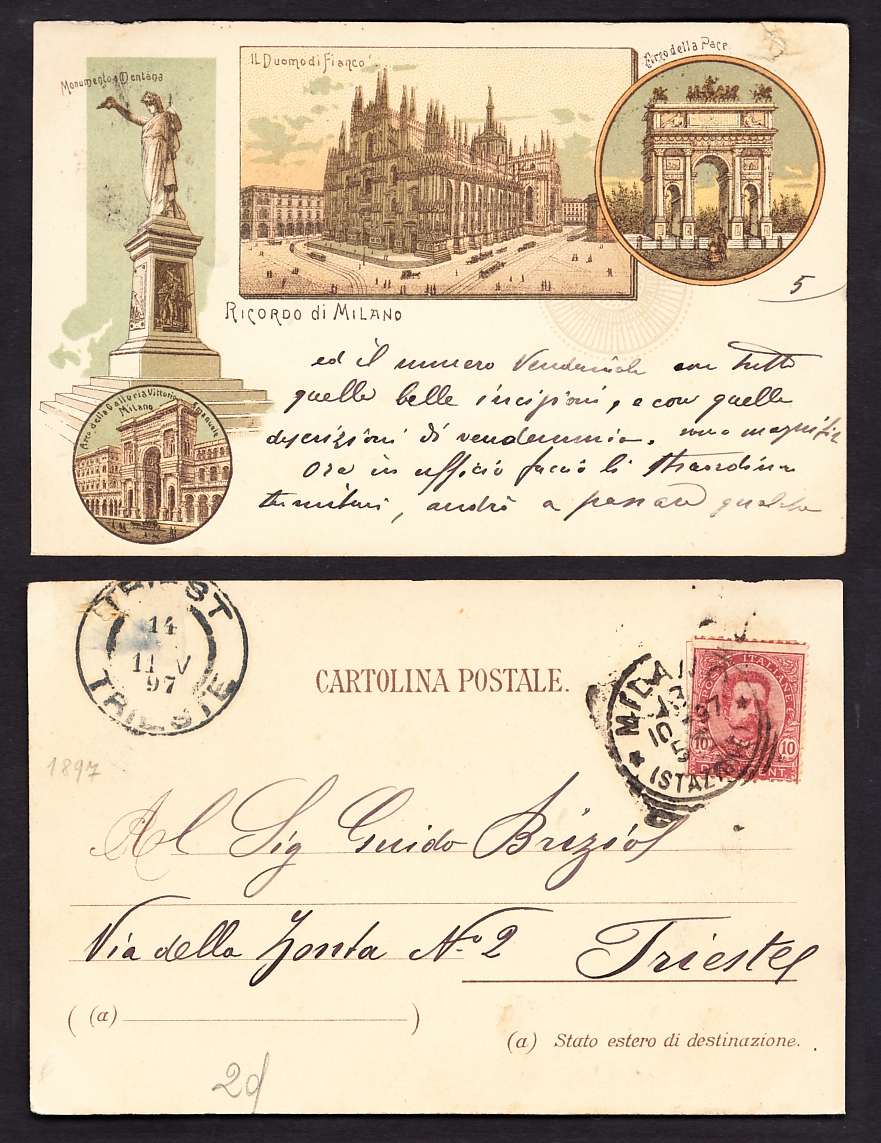 Monumento a Mentana
Il Duomo di Fianco
Arco della Pace
5
Ricordo di Milano
Arco della Galleria Vittorio Emanuele
Milano
ed il numero con tutte
quelle belle incisioni, e con quelle
descrizioni di vendemmia.
Ora in ufficio faccio li
andrò a passare qualche
TRIEST
14
11 V
97
TRIESTE
CARTOLINA POSTALE.
MILANO
10
5
ISTAZIONE
POSTE ITALIANE
10 10
CENT.
1897
Al Sig Guido
Via della Zonta N.o 2 Trieste
( (a) )
(a) Stato estero di destinazione.